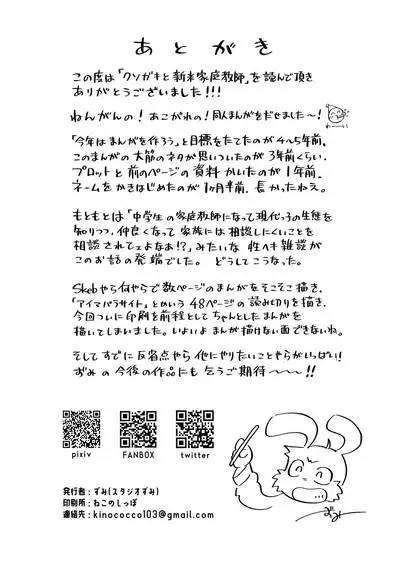 あとがき
この度は「クソガキと新米家庭教師」を読んで頂き
ありがとうございました!!!
ねんがんの!あこがれの!同人まんがをだせました〜!
「今年はまんがを作ろう」と目標をたてたのが4〜5年前、
このまんがの大筋のネタが思いついたのが3年前くらい、
プロットと前のページの資料かいたのが1年前、
ネームをかきはじめたのが1ヶ月半前、長かったねえ。
もともとは「中学生の家庭教師になって現代っ子の生態を
知りつつ、仲良くなって家族には相談しにくいことを
相談されてぇよなあ!?」みたいな性へキ雑談が
このお話の発端でした。どうしてこうなった。
Skebやら何やらで数ページのまんがをそこそこ描き、
「アイマパラサイト」とかいう48ページの読み切りを描き、
今回ついに印刷を前提としてちゃんとしたまんがを
描いてしまいました。いよいよまんが描けない面できないね。
そしてすでに反省点やら他にやりたいことやらがいっぱい!
ずみの今後の作品にも乞うご期待〜〜〜!!
pixiv
FANBOX
twitter
発行者:ずみ(スタジオずみ)
印刷所:ねこのしっぽ
連絡先:kinococco103@gmail.com
ずみ